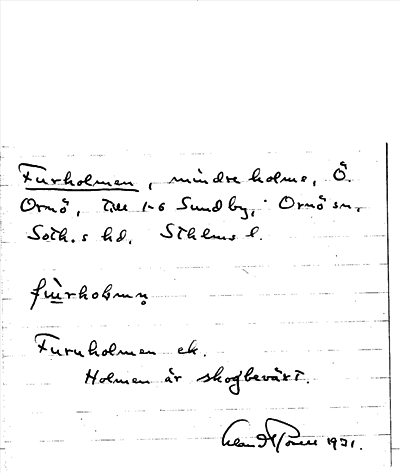 Furholmen, mindre holme, Ö.
Ornö, till 1-6 Sundby, Ornö sn,
Soth.s hd, Sthlms l.
fùrholmṇ
Furuholmen ek.
Holmen är skogbeväxt.
1921.